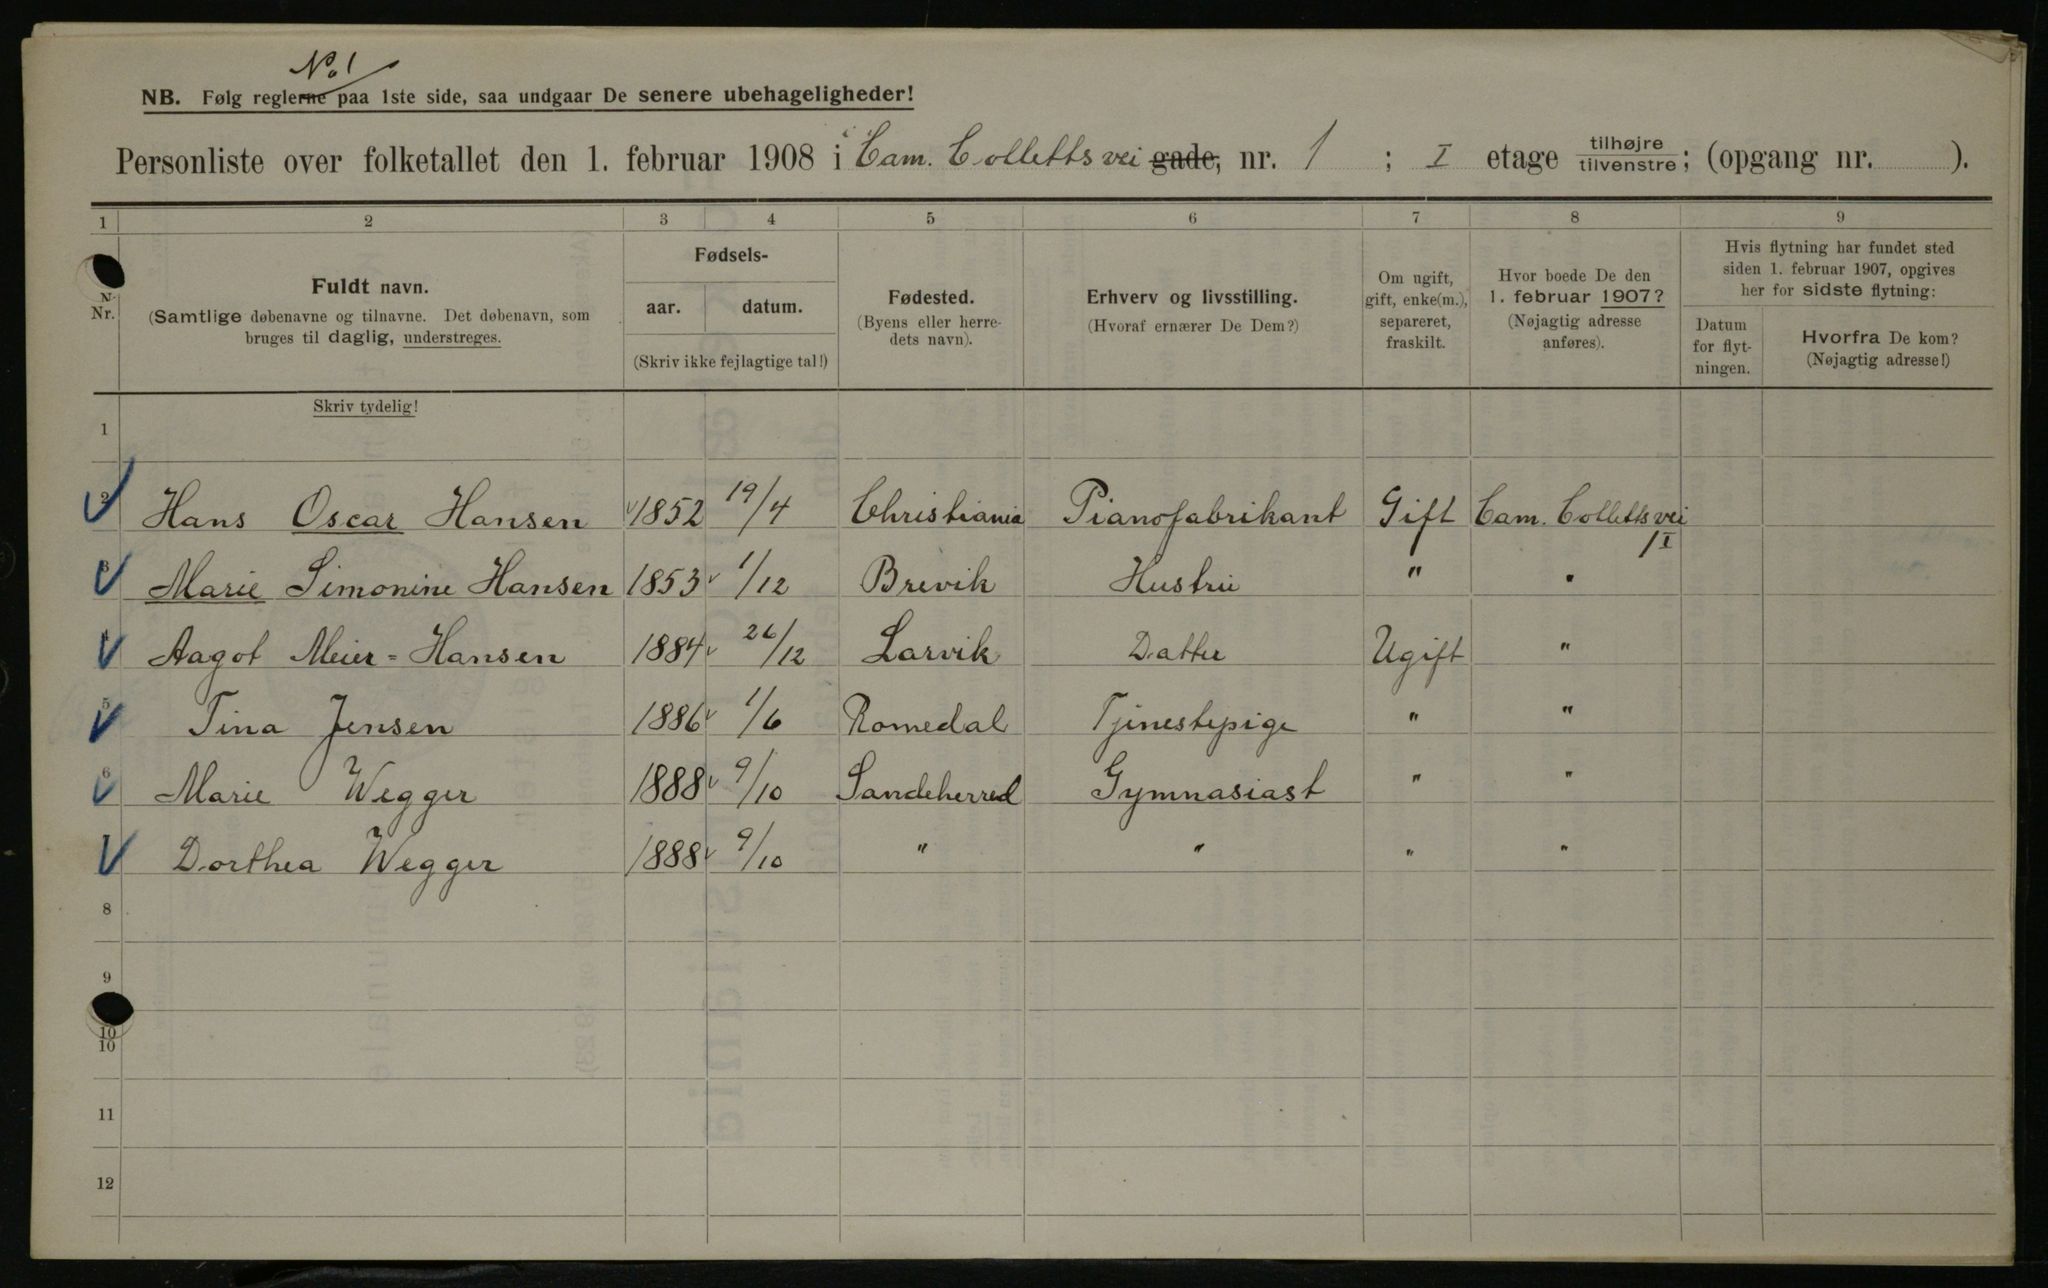 No 1
NB. Følg reglerne paa 1ste side, saa undgaar De senere ubehageligheder!
Personliste over folketallet den 1. februar 1908 i Cam. Colletts vei gade, nr. 1 ; I etage tilhøjre tilvenstre; (opgang nr. ).
1 2 3 4 5 6 7 8 9
Nr.
Fuldt navn.
(Samtlige døbenavne og tilnavne. Det døbenavn, som
bruges til daglig, understreges.
Fødsels-
aar. datum.
(Skriv ikke fejlagtige tal!)
Fødested.
(Byens eller herre-
dets navn).
Erhverv og livsstilling.
(Hvoraf ernærer De Dem?)
Om ugift,
gift, enke(m.),
separeret,
fraskilt.
Hvor boede De den
1. februar 1907?
(Nøjagtig adresse
anføres).
Hvis flytning har fundet sted
siden 1. februar 1907, opgives
her for sidste flytning:
Datum
for flyt-
ningen.
Hvorfra De kom?
(Nøjagtig adresse!)
Skriv tydelig!
1
2 Hans Oscar Hansen 1852 19/4 Christiania Pianofabrikant Gift Cam. Colletts vei
1 I
3 Marie Simonine Hansen 1853 1/12 Brevik Hustru " "
4 Aagot Meier-Hansen 1884 26/12 Larvik Datter Ugift "
5 Tina Jensen 1886 1/6 Romedal Tjenestepige " "
6 Marie Wegger 1888 9/10 Sandeherred Gymnasiast " "
7 Dorthea Wegger 1888 9/10 " " " "
8
9
10
10
11
12